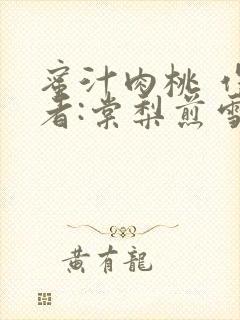 蜜汁肉桃 作
者:棠梨煎雪
黄有龍